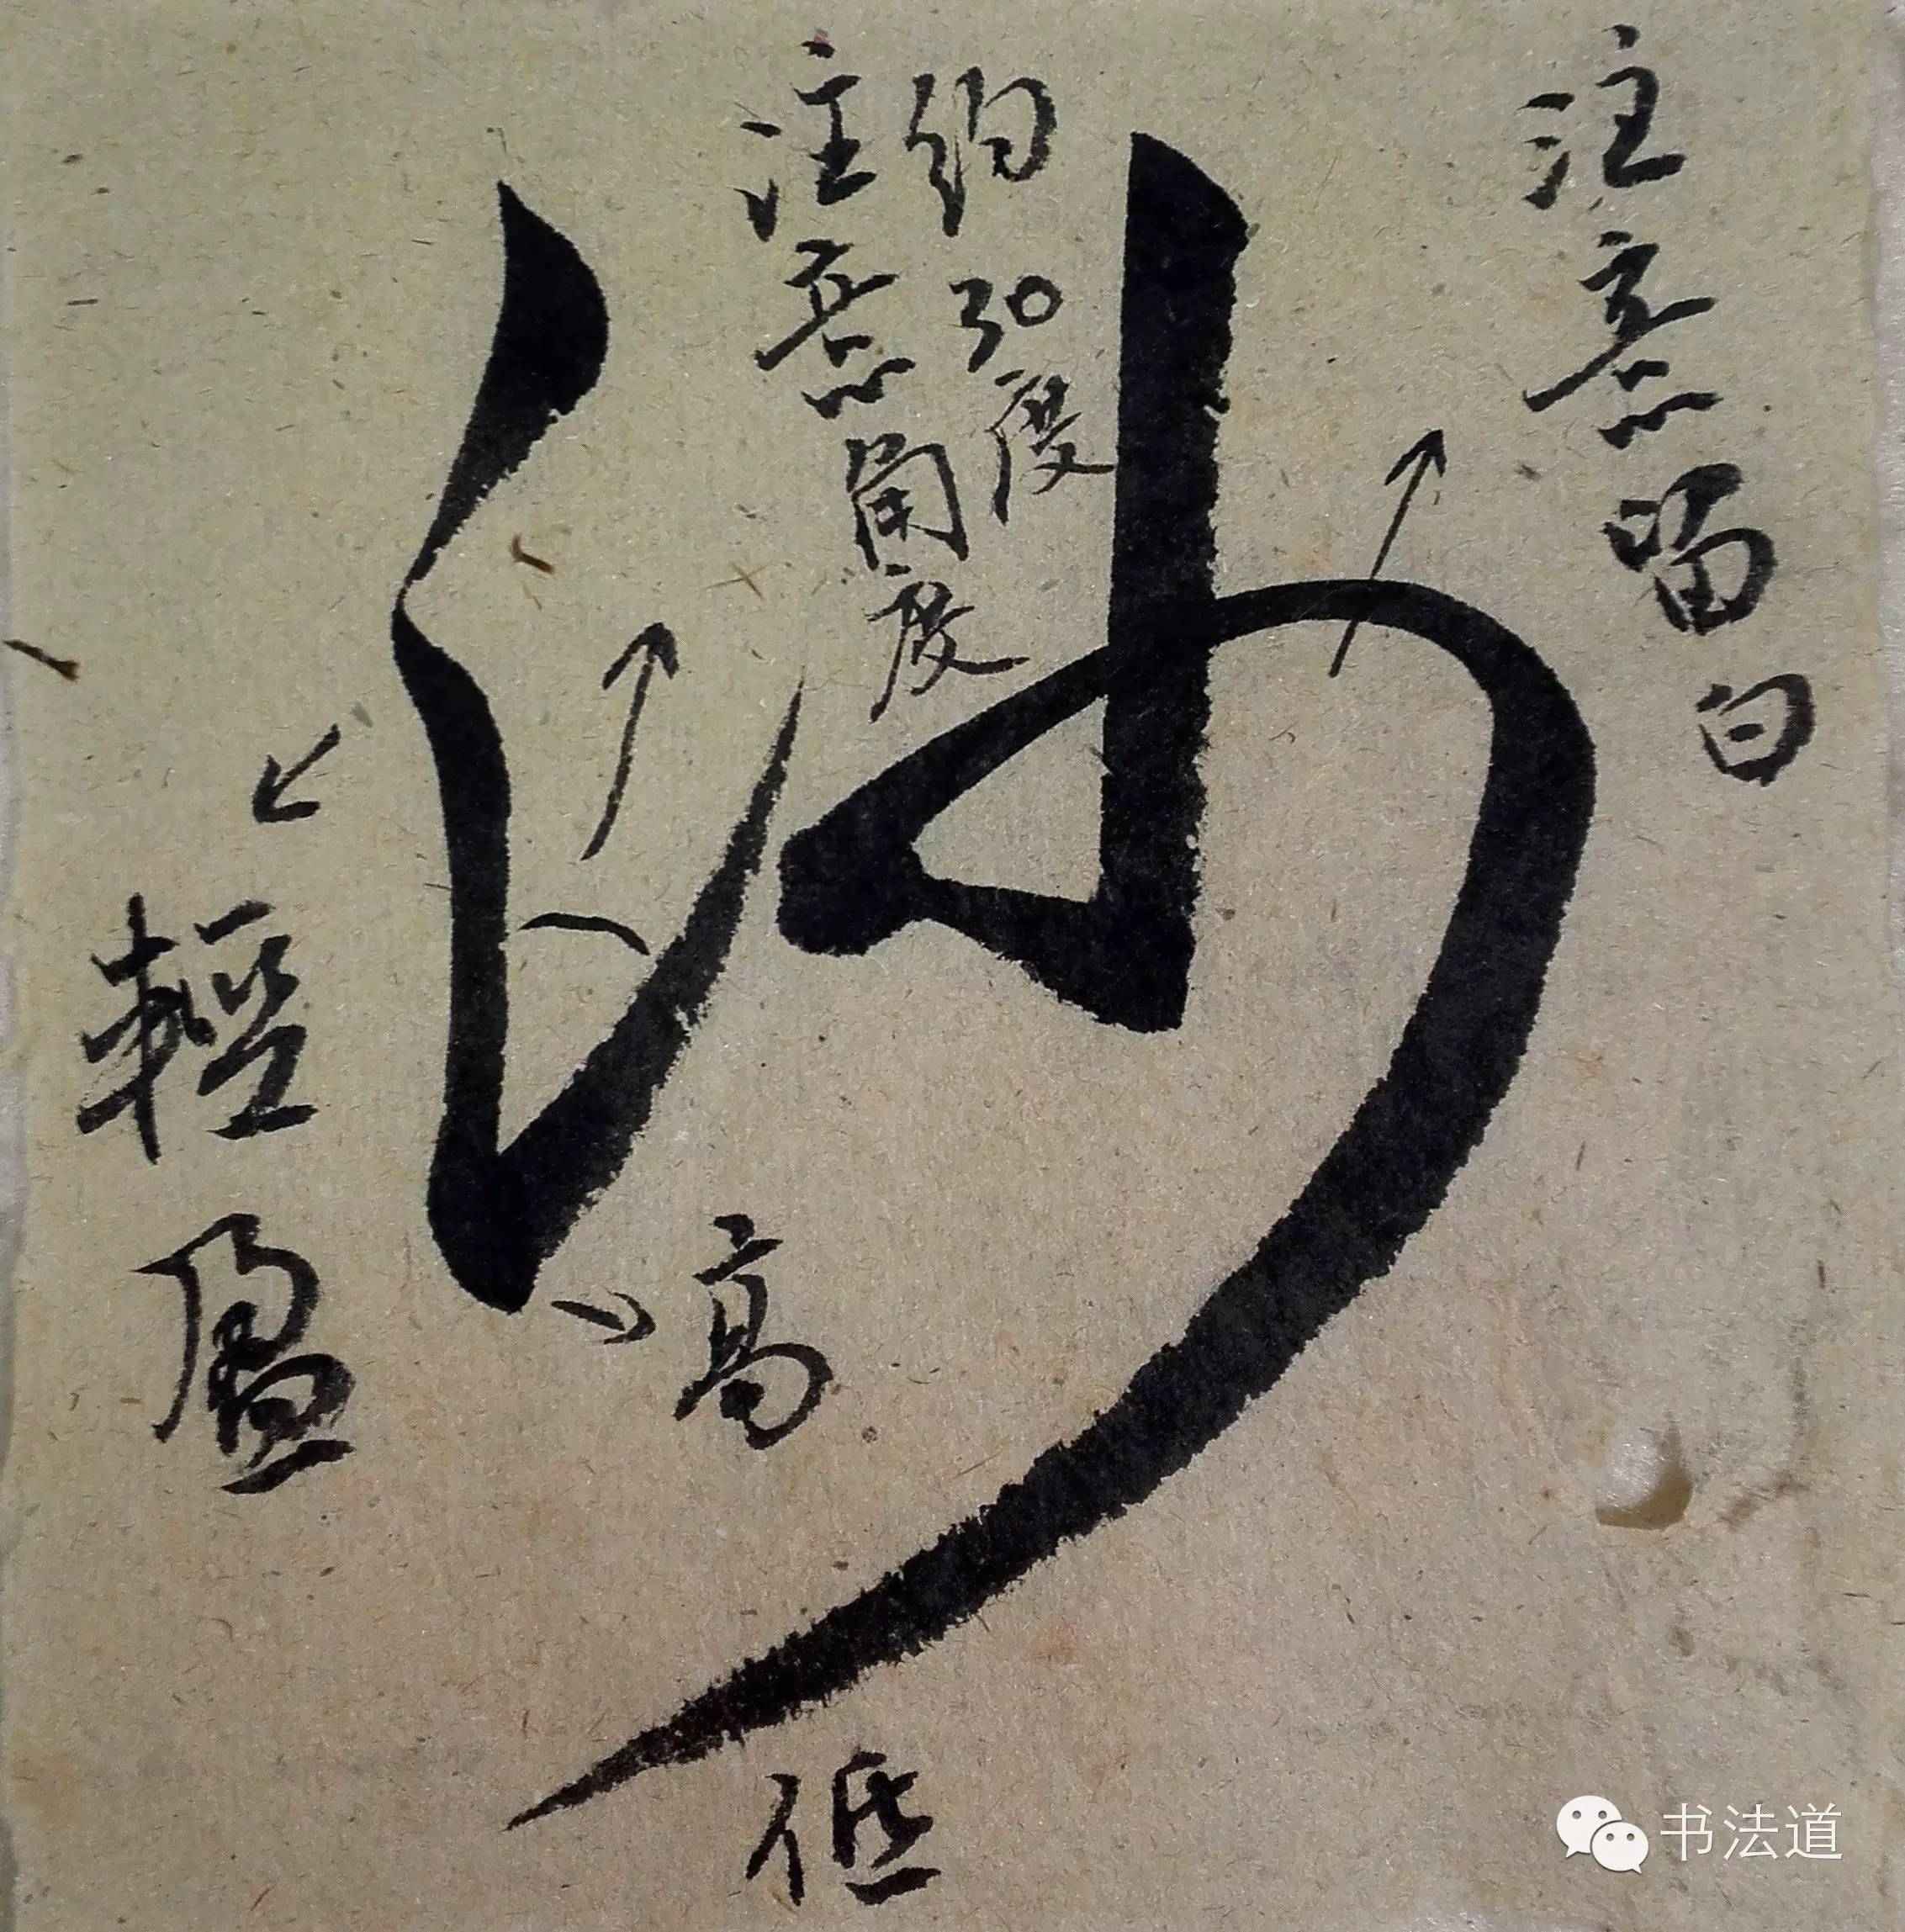 注意留白
约30度
注意角度
沙
輕盈
高
低
书法道